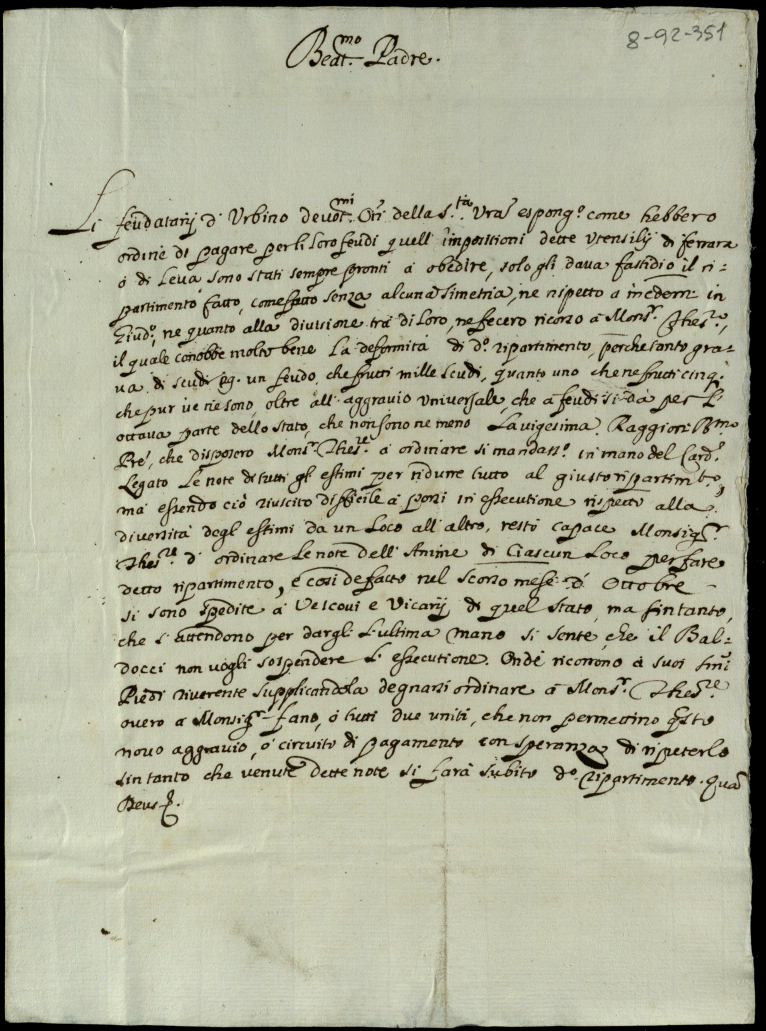 8-92-351
Beat.mo Padre.
Li feudatarij d' Urbino devot.mi Ori della S.tà Vra espong.o come hebbero
ordine di pagare per li loro feudi quell' impositioni dette Utensilij di ferrara
ò di Leva sono stati sempre pronti à obedire, solo gli dava fastidio il ri-
partimento fatto, come fatto senza alcuna simetria, ne rispetto à medem in
Giud.o, ne quanto alla divisione trà di loro, ne fecero ricorso à Mons.r Thes.re,
il quale conobbe molto bene la deformità di d.o ripartimento, perche tanto gra-
va di scudi un feudo, che frutti mille scudi, quanto uno che ne frutti cinq.
che pur ve ne sono, oltre all' aggravio universale, che à feudi si dà per l'
ottava parte dello stato, che non sono ne meno la vigesima. Raggioni Bmo
Pre, che disposero Mons.r Thes.re à ordinare si mandass.o in mano del Card.e
Legato le note di tutti gl' estimi per ridurre tutto al giusto ripartim.to,
mà essendo ciò riuscito difficile à porsi in essecutione rispetto alla
diversità degl' estimi da un loco all' altro, restò capace Monsig.r
Thes.re d' ordinare le note dell' Anime di Ciascun Loco per fare
detto ripartimento, e così de facto nel scorso mese d' Ottobre
si sono spedite à Vescovi e Vicarij di quel stato, ma fin tanto,
che s' attendono per dargli l' ultima mano si sente, che il Bal-
docci non vogli sospendere l' essecutione. Onde ricorrono à suoi smi
Piedi riverente supplicandola degnarsi ordinare à Mons.r Thes.re
overo à Monsig.r Fano, ò tutti due uniti, che non permettino qsto
novo aggravio, ò circuito di pagamento con speranza di ripeterlo
sin tanto che venute dette note si farà subito d.o ripartimento. Quā
Deus